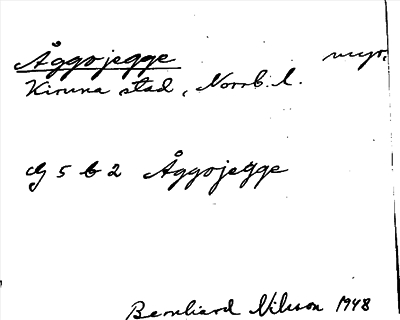 Åggojegge myr.
Kiruna stad, Norrb. l.
G 5 b 2 Åggojegge
Bernhard Nilsson 1948